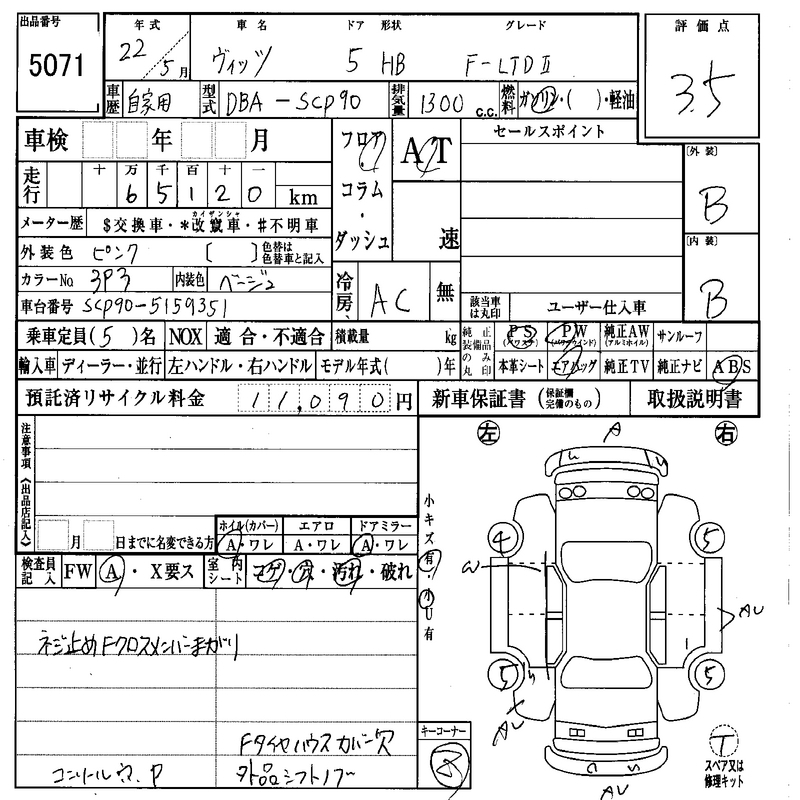 出品番号
5071
年式
22/5月
車名
ヴィッツ
ドア 形状
5 HB
グレード
F-LTDⅡ
評価点
3.5
車歴 自家用
型式 DBA-SCP90
排気量 1300 c.c.
燃料 ガソリン・( )・軽油
車検 年 月
フロア・コラム・ダッシュ
AT
速
セールスポイント
[外装]
B
[内装]
B
走行 十 万 千 百 十 一
65120 km
メーター歴 $交換車・*改竄車・#不明車
カイザンシャ
外装色 ピンク [ ] 色替は色替車と記入
カラーNo 3P3 内装色 ベージュ
車台番号 SCP90-5159351
冷房 AC 無
該当車は丸印 ユーザー仕入車
乗車定員(5)名 NOX 適合・不適合 積載量 kg
純正装備品のみ丸印
PS(パワステ) PW(パワーウインド) 純正AW(アルミホイル) サンルーフ
輸入車 ディーラー・並行 左ハンドル・右ハンドル モデル年式( )年
本革シート エアバッグ 純正TV 純正ナビ ABS
預託済リサイクル料金 11,090円
新車保証書(保証欄完備のもの) 取扱説明書
注意事項《出品店記入》
月 日までに名変できる方
ホイル(カバー) エアロ ドアミラー
A・ワレ A・ワレ A・ワレ
検査員記入 FW A・X要ス
室内シート コゲ・穴・汚れ・破れ
小キズ有・小U有
ネジ止め Fクロスメンバーまがり
Fタイヤハウスカバー欠
外品シフトノブ
キーコーナー
左 右
A
4 5
AU
5 5
AU
T
スペア又は修理キット